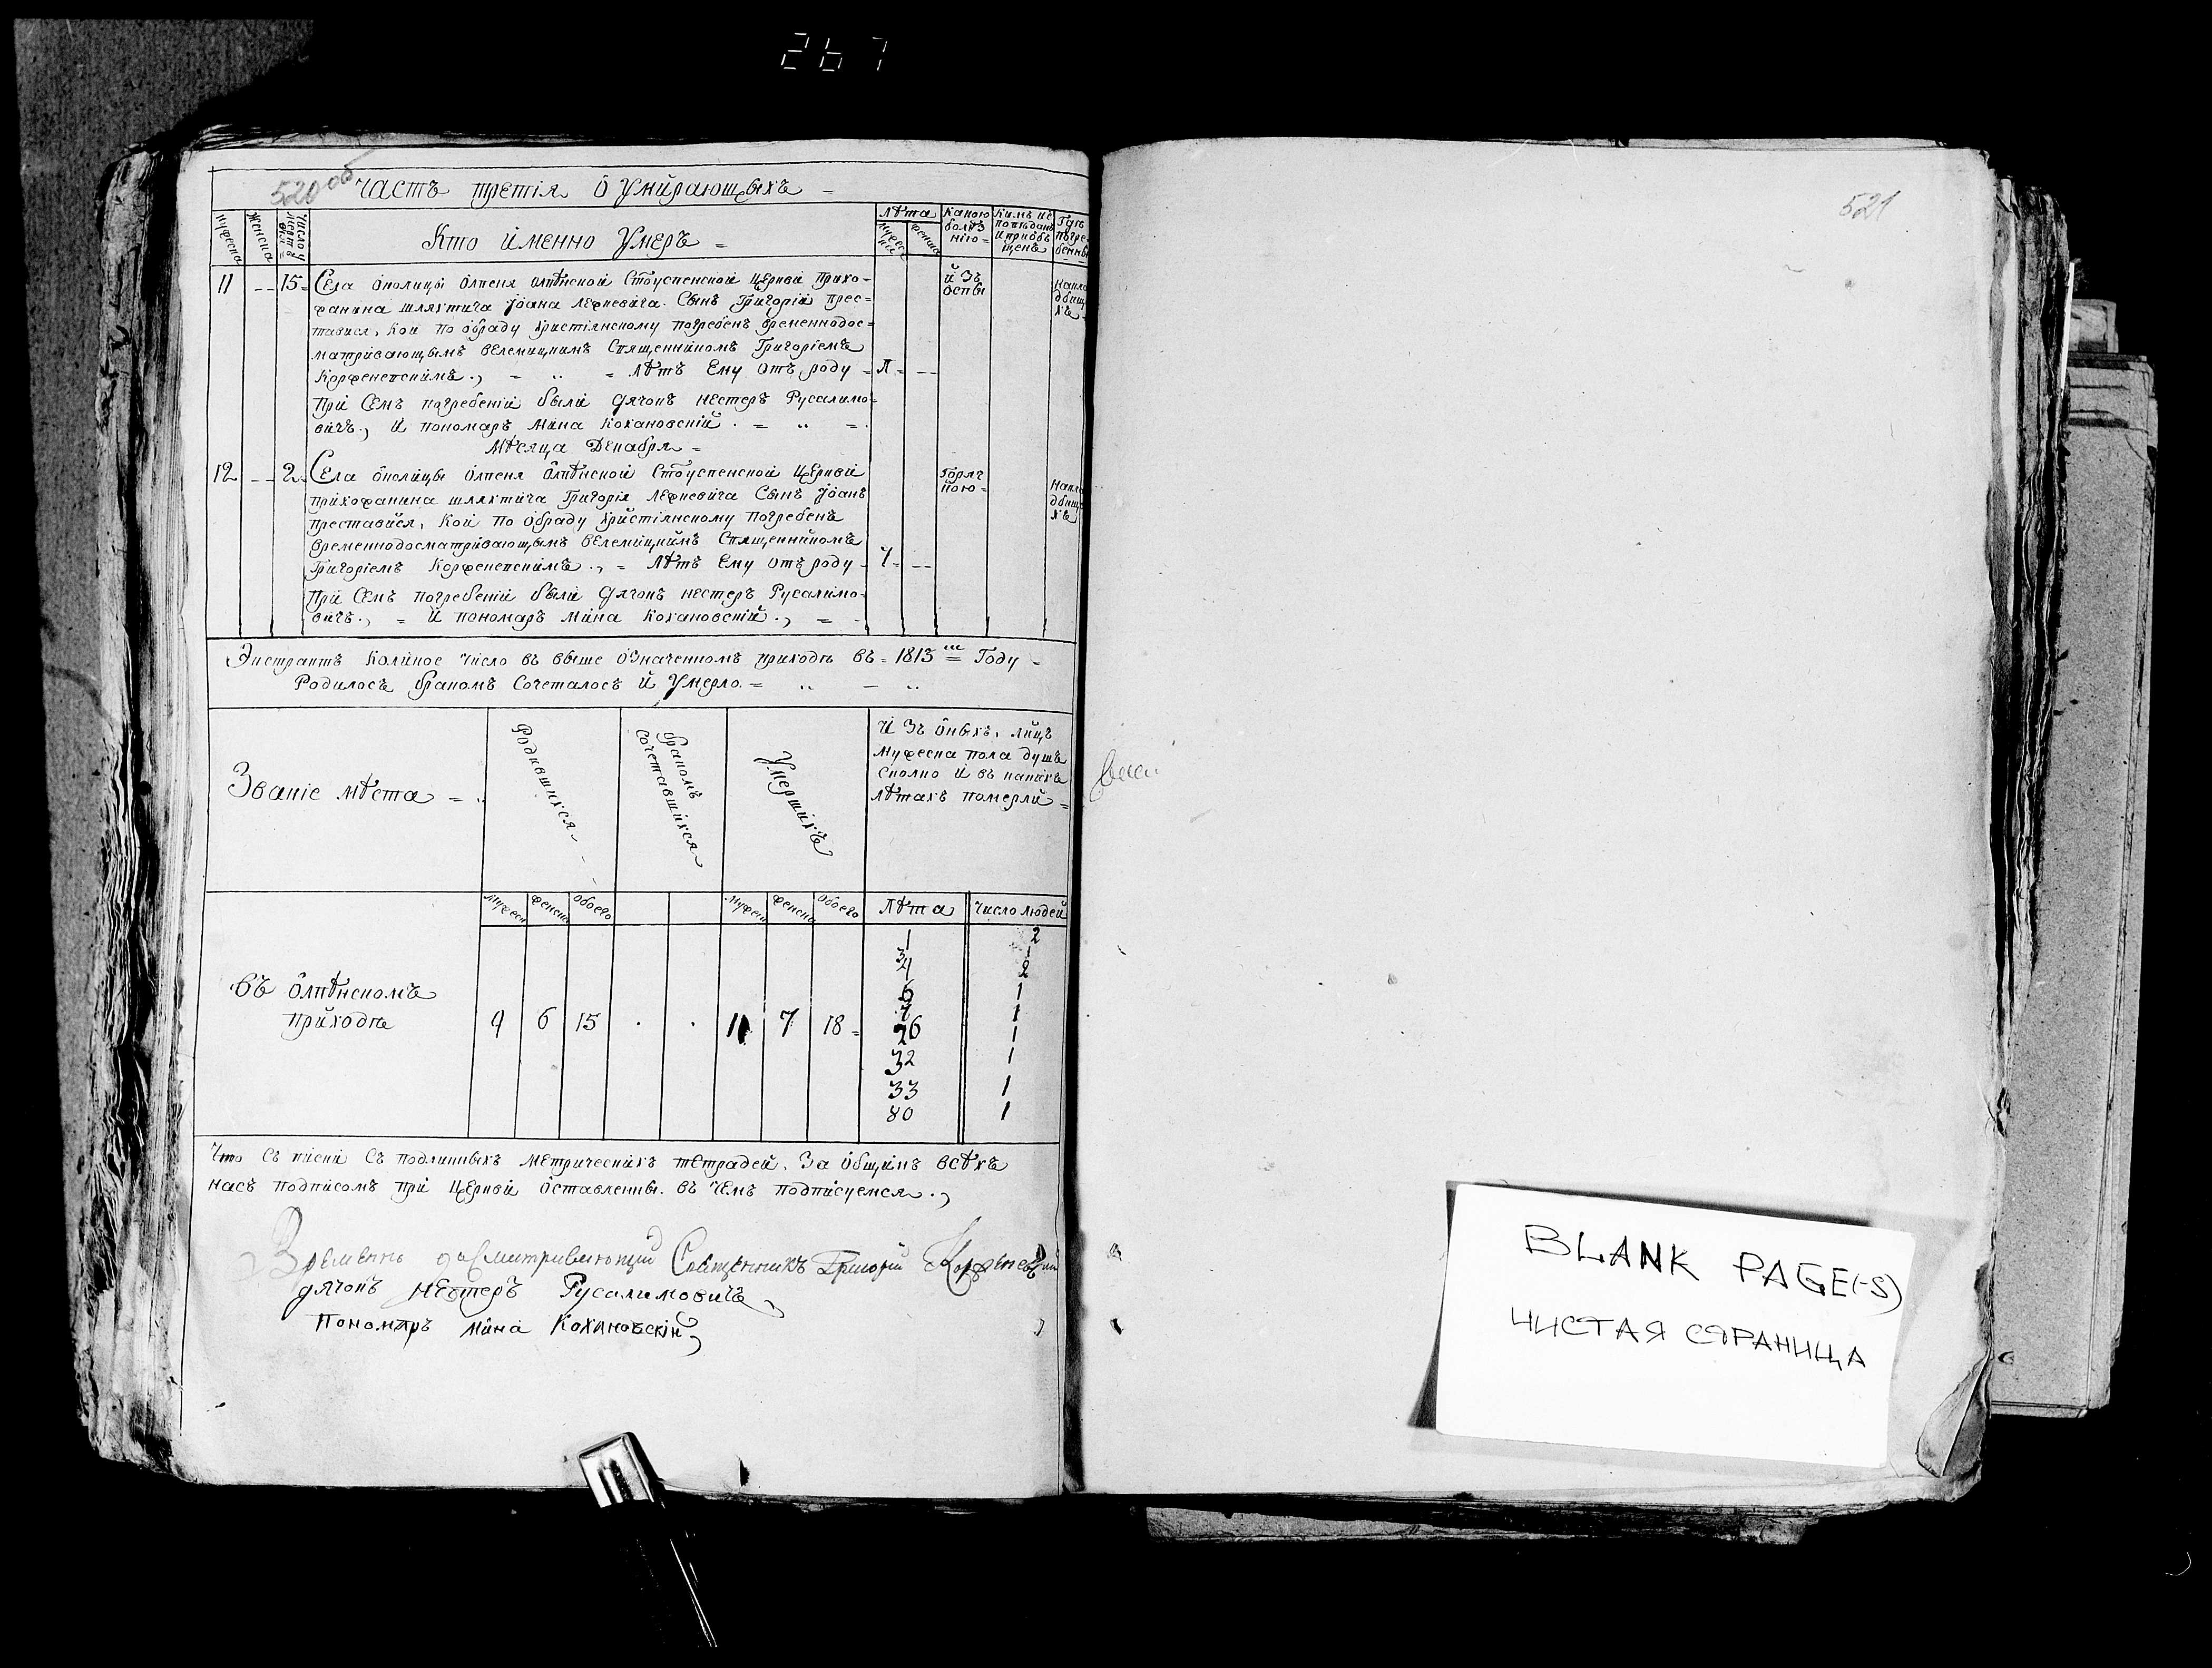 267
520 об
Часть третія о Умирающихъ
Мужеска
Женска
Число у мертвія
Кто именно Умеръ
Лѣта
Мужескія
Женска
Какою болѣзнію
Кимъ исповѣданъ и приобъщенъ
Гдѣ погребенны
11 - - 15 Села околицы Олпеня Олпѣнской Стоуспенской Церкви прихо-
жанина шляхтича Іоана Лежневича Сынъ Григорій прес-
тавися, кои по обряду христіянскому погребенъ временнодос-
матривающымъ велемицкимъ Священникомъ Григоріемъ
Корженевскимъ., Лѣтъ Ему отъ роду - Л
При Семъ погребеніи были Дячокъ Нестеръ Русалимо-
вичъ., И пономаръ Мина Кохановскій.
изъ оспы
на кладбищѣ
Мѣсяца Декабря
12 - - 2 Села околицы Олпеня Олпѣнской Стоуспенской Церкви
прихожанина шляхтича Григорія Лежневича Сынъ Іоанъ
преставися, кои по обряду христіянскому погребенъ
временнодосматривающымъ велемицкимъ Священникомъ
Григоріемъ Корженевскимъ., Лѣтъ Ему отъ роду - 7
При Семъ погребеніи были Дячокъ Нестеръ Русалимо-
вичъ., И пономаръ Мина Кохановскій.,
горячкою
на кладбищѣ
Экстрактъ Коликое число въ выше означенномъ приходѣ въ 1813 м Году
Родилось бракомъ Сочеталось и Умерло
Званіе мѣста
Родившихся
бракомъ сочетавшихся
Умершихъ
И Зъ оныхъ, лицъ
мужеска пола душъ
сколко и въ какихъ
лѣтахъ померли
Мужеск Женска Обоего Мужеск Женска Обоего Лѣта Число людей
въ Олпѣнскомъ
приходѣ
9 6 15 . . 11 7 18
1 2
3 1
4 2
6 1
7 1
26 1
32 1
33 1
80 1
Что Съ писки Съ подлинныхъ метрическихъ тетрадей, За общимъ всѣхъ
насъ подписомъ при Церкви оставленны. въ чемъ подписуемся.,
Времѣнно досматривающий Священникъ Григорий Корженевский
дячокъ Нестеръ Русалимовичъ
Пономаръ Мина Кохановскій
521
BLANK PAGE(-S)
ЧИСТАЯ СТРАНИЦА